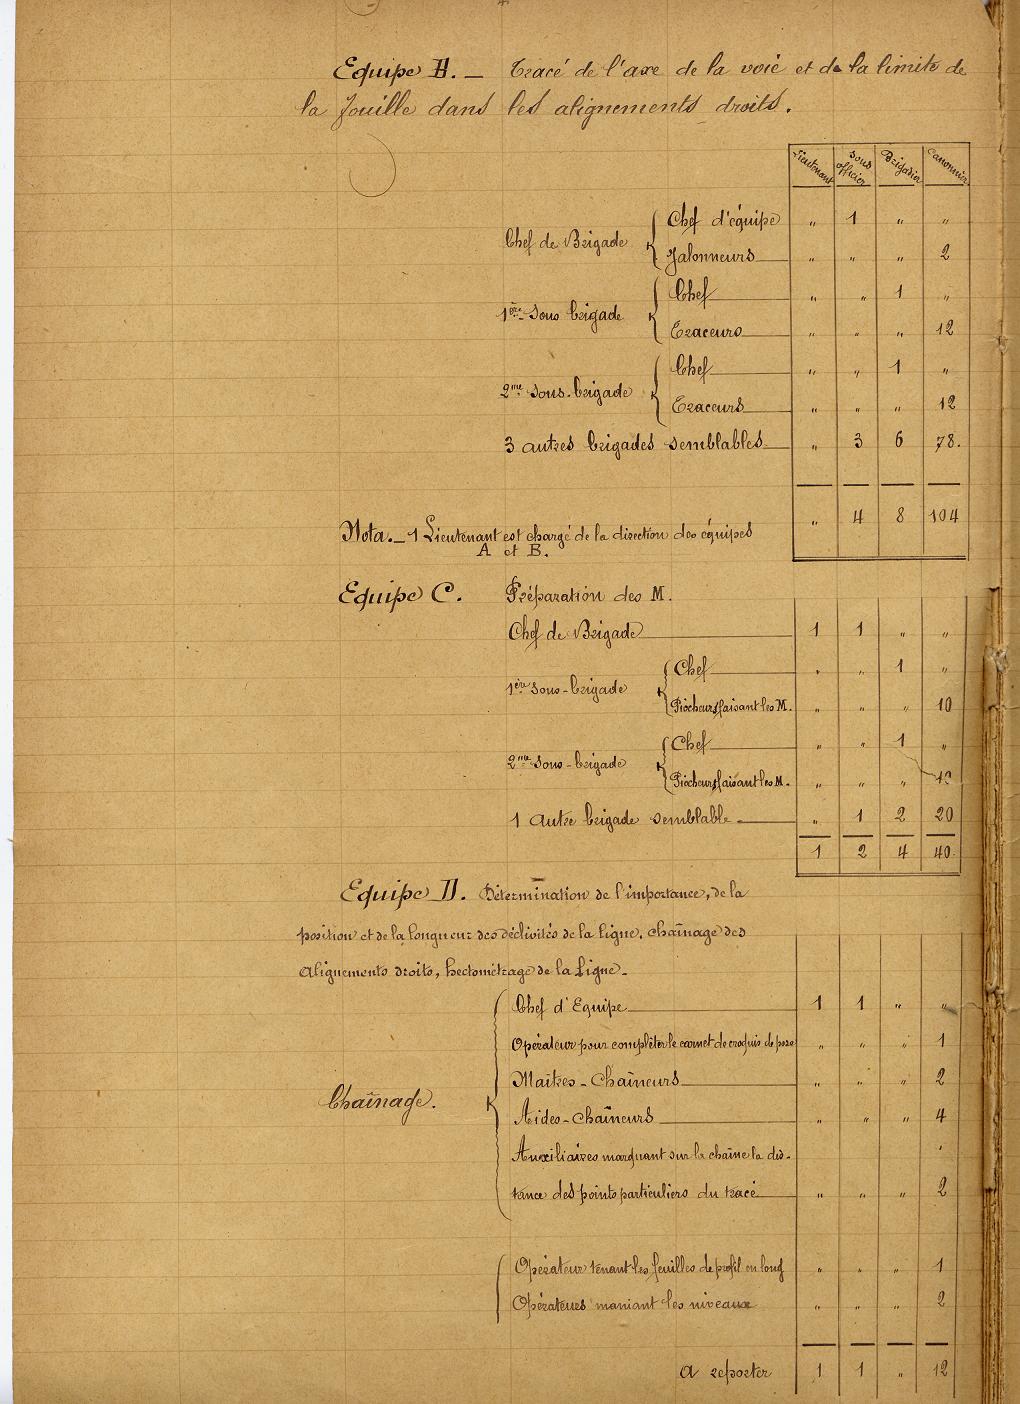 Equipe B. _ Tracé de l'axe de la voie et de la limite de
la fouille dans les alignements droits.
Lieutenant Sous officier Brigadier Canonnier
Chef de Brigade { Chef d'équipe " 1 " "
Jalonneurs " " " 2
1ère Sous brigade { Chef " " 1 "
Traceurs " " " 12
2me sous-brigade { Chef " " 1 "
Traceurs " " " 12
3 autres brigades semblables " 3 6 78.
" 4 8 104
Nota. _ 1 Lieutenant est chargé de la direction des équipes
A et B.
Equipe C. Préparation des M.
Chef de Brigade 1 1 " "
1ère sous-brigade { Chef " " 1 "
Piocheurs faisant les M. " " " 10
2me sous-brigade { Chef " " 1 "
Piocheurs faisant les M. " " " 10
1 autre brigade semblable " 1 2 20
1 2 4 40.
Equipe D. Détermination de l'importance, de la
position et de la longueur des déclivités de la ligne. chaînage des
alignements droits, hectométrage de la Ligne _
Chaînage. { Chef d'Equipe 1 1 " "
Opérateur pour compléter le carnet de croquis de pose " " " 1
Maîtres-Chaîneurs " " " 2
Aides-chaîneurs " " " 4
Auxiliaires marquant sur la chaîne la dis-
tance des points particuliers du tracé " " " 2
Opérateur tenant les feuilles de profil en long " " " 1
Opérateurs maniant les niveaux " " " 2
A reporter 1 1 " 12